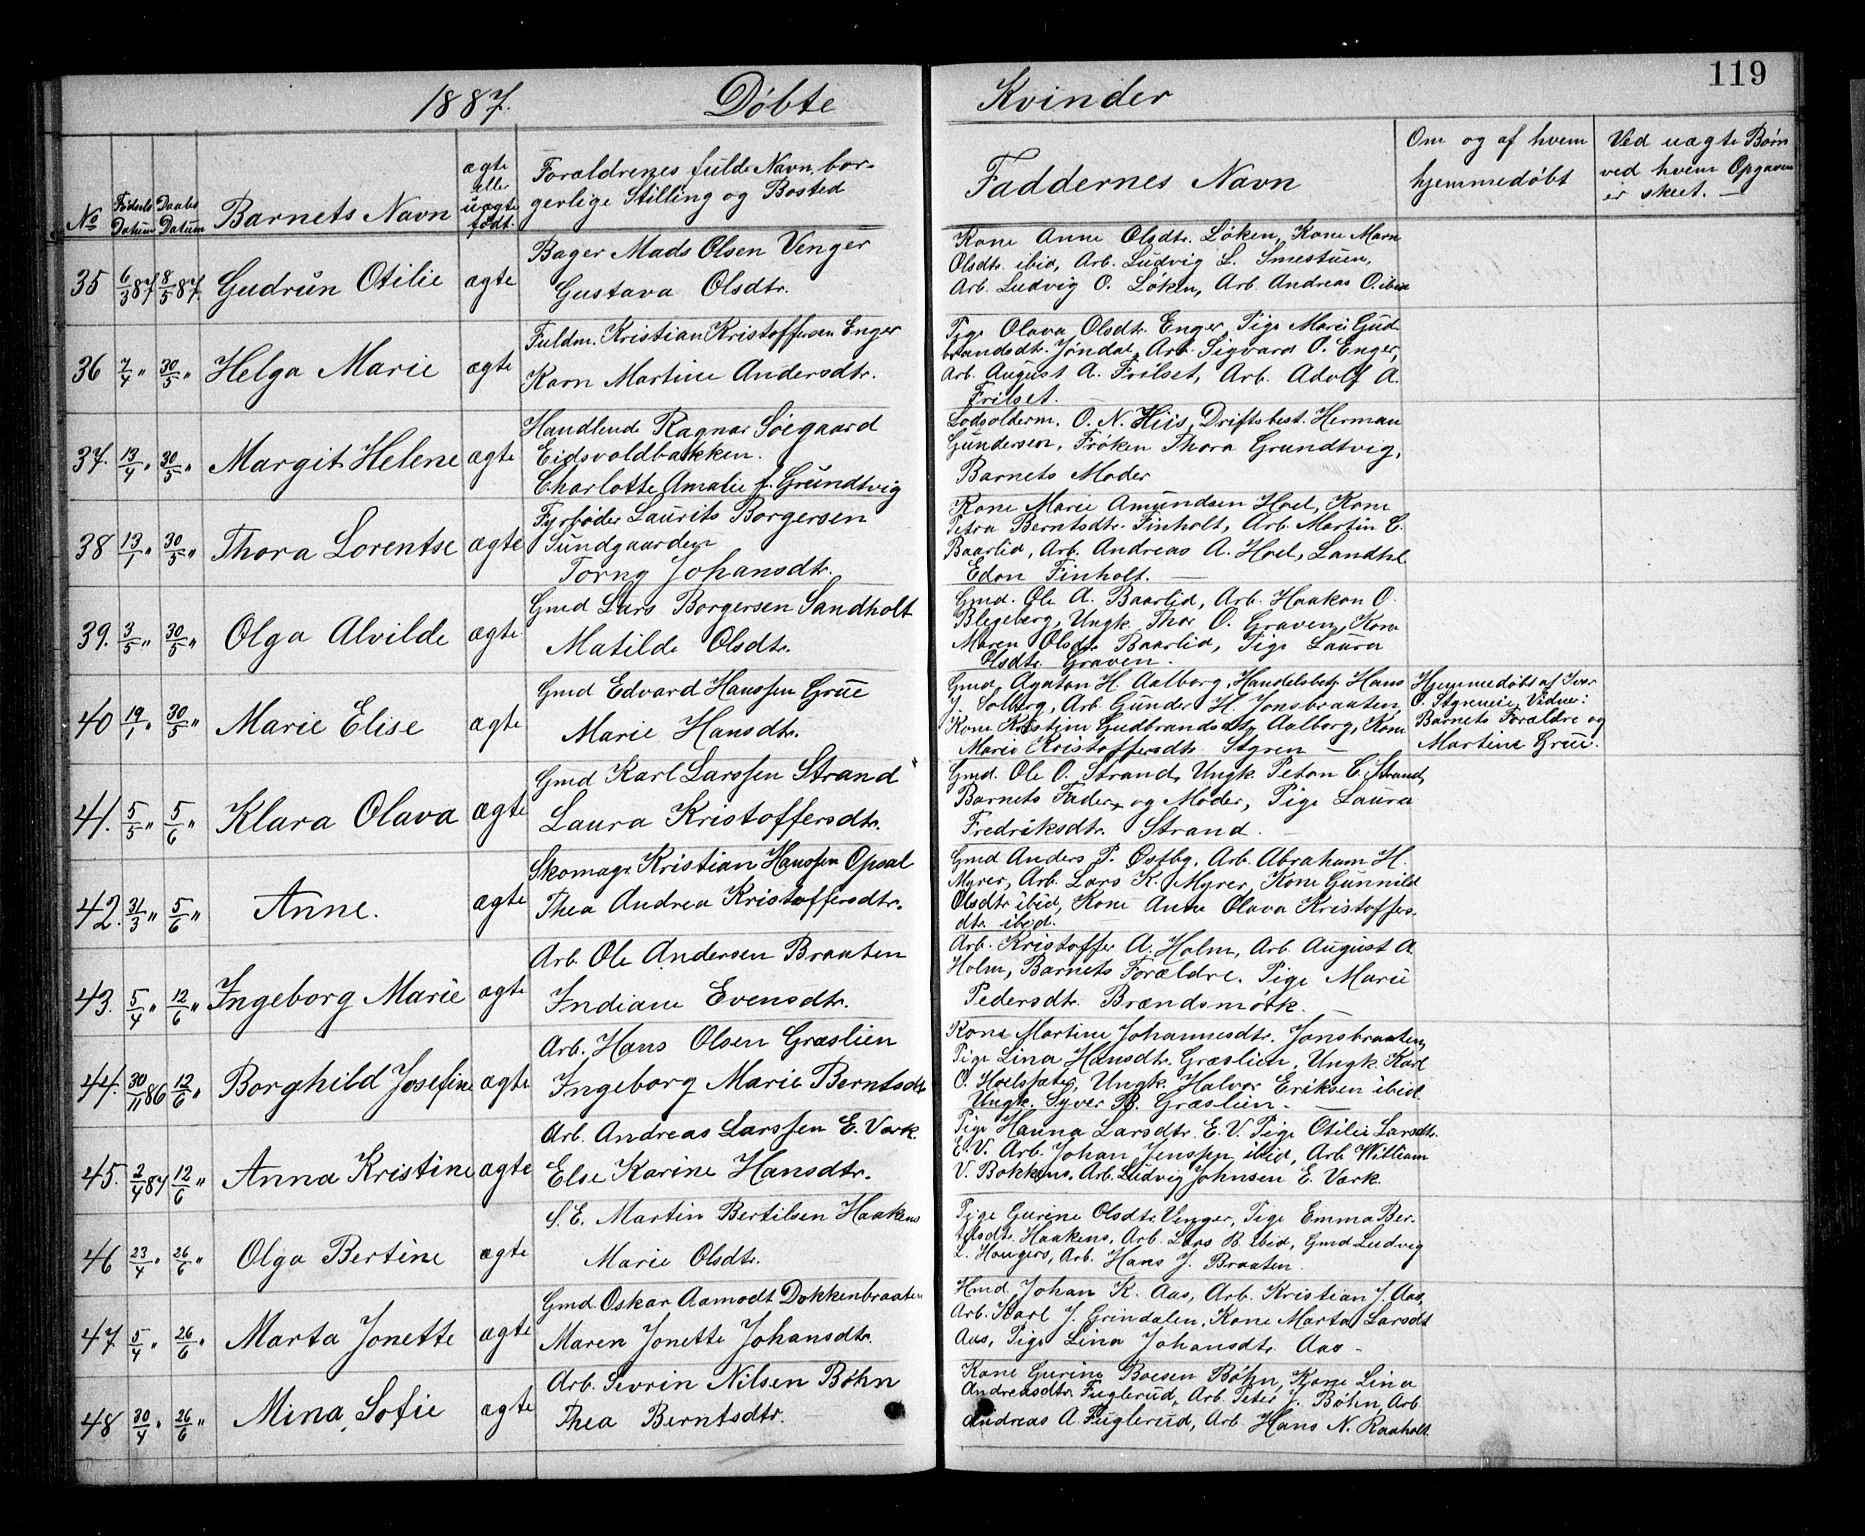 119
1887. Døbte Kvinder
No
Fødsels Datum
Daabs Datum
Barnets Navn
ægte eller uægte født.
Forældrenes fulde Navn, bor-
gerlige Stilling og Bosted
Faddernes Navn
Om og af hvem
hjemmedøbt
Ved uægte Børn
ved hvem Opgaven
er skeet. —
35 6/3 87 8/5 87. Gudrun Otilie ægte
Bager Mads Olsen Venger
Gustava Olsdtr.
Kone Anne Olsdtr. Løken, Kone Marn
Olsdtr. ibid, Arb. Ludvig L. Smestuen,
Arb. Ludvig O. Løken, Arb. Andreas O. ibid
36 7/4 " 30/5 " Helga Marie ægte
Fuldm. Kristian Kristoffersen Enger
Karn Martine Andersdtr.
Pige Olava Olsdtr. Enger, Pige Marie Gud-
brandsdtr. Jøndal, Arb. Sigvard O. Enger,
Arb. August A. Frilset, Arb. Adolf A.
Frilset.
37. 13/4 " 30/5 " Margit Helene ægte
Handlende Ragnar Søegaard
Eidsvoldbakken.
Charlotte Amalie f. Grundtvig
Lodsolderm. O. N. Hiis, Driftsbest. Herman
Gundersen, Frøken Thora Grundtvig,
Barnets Moder
38 13/1 " 30/5 " Thora Lorentse ægte
Fyrbøder Laurits Borgersen
Sundgaarden
Torny Johansdtr.
Kone Marie Amundsen Hoel, Kone
Petra Berntsdtr. Finholt, Arb. Martin C.
Baarlid, Arb. Andreas A. Hoel, Landhl.
Edon Finholt. —
39. 3/5 " 30/5 " Olga Alvilde ægte
Gmd Lars Borgersen Sandholt
Matilde Olsdtr.
Gmd. Ole A. Baarlid, Arb. Haakon O.
Blegeberg, Ungk. Thor O. Graven, Kone
Maren Olsdtr. Baarlid, Pige Laura
Olsdtr. Graven.
40 19/1 " 30/5 " Marie Elise ægte
Gmd Edvard Hanssen Grue
Marie Hansdtr.
Gmd. Agaton H. Aalborg, Handelsbetj. Hans
J. Solberg, Arb. Gunder H. Jonsbraaten,
Kone Kristine Gudbrandsdtr. Aalborg, Kone
Marie Kristoffersdtr. Styren —
Hjemmedøbt af Iver
O. Styrneie, Vidner:
Barnets Forældre og
Martine Grue.
41. 5/5 " 5/6 " Klara Olava ægte
Gmd Karl Larssen Strand
Laura Kristoffersdtr.
Gmd. Ole O. Strand, Ungk. Peton C. Strand,
Barnets Fader og Moder, Pige Laura
Fredriksdtr. Strand. —
42. 31/3 " 5/6 " Anne. ægte
Skomagr. Kristian Hanssen Opsal
Thea Andrea Kristoffersdtr.
Gmd Anders P. Østby, Arb. Abraham H.
Myrer, Arb. Lars K. Myrer, Kone Gunnild
Olsdtr ibid, Kone Anne Olava Kristoffers-
dtr. ibid.
43. 5/4 " 12/6 " Ingeborg Marie ægte
Arb. Ole Andersen Braaten
Indiane Evensdtr.
Arb. Kristoffer A. Holm, Arb. August A.
Holm, Barnets Forældre, Pige Marie
Pedersdtr. Brændsmørk.
44. 30/11 86 12/6 " Borghild Josefine ægte
Arb. Hans Olsen Græslien
Ingeborg Marie Berntsdtr
Kone Martine Johannesdtr. Jonsbraaten,
Pige Lina Hansdtr. Græslien, Ungk. Karl
O. Hoelsfæter, Ungk. Halvor Eriksen ibid.
Ungk. Syver B. Græslien. —
45. 2/4 87 12/6 " Anna Kristine ægte
Arb. Andreas Larssen E. Værk.
Else Karine Hansdtr.
Pige Hanna Larsdtr. E. V. Pige Otilie Larsdtr.
E. V. Arb. Johan Jenssen ibid, Arb. William
V. Bakken, Arb. Ludvig Johnsen E. Værk.
46 23/4 " 26/6 " Olga Bertine ægte
S. E. Martin Bertilsen Haakens
Marie Olsdtr.
Pige Gurine Olsdtr. Venger, Pige Emma Ber-
tilsdtr. Haakens, Arb. Lars B. ibid, Gmd Ludvig
L. Haugers, Arb. Hans J. Braaten.
47 5/4 " 26/6 " Marta Jonette ægte
Gmd. Oskar Aamodt Dokkenbraaten
Maren Jonette Johansdtr.
Hmd. Johan K. Aas, Arb. Kristian J. Aas,
Arb. Karl J. Grindalen, Kone Marta Larsdt
Aas, Pige Lina Johansdtr. Aas —
48 30/4 " 26/6 " Mina Sofie ægte
Arb. Sevrin Nilsen Bøhn
Thea Berntsdtr.
Kone Gurine Boesen Bøhn, Kone Lina
Andreasdtr. Fuglerud, Arb. Peter J. Bøhn, Arb.
Andreas A. Fuglerud, Arb. Hans N. Raaholt.